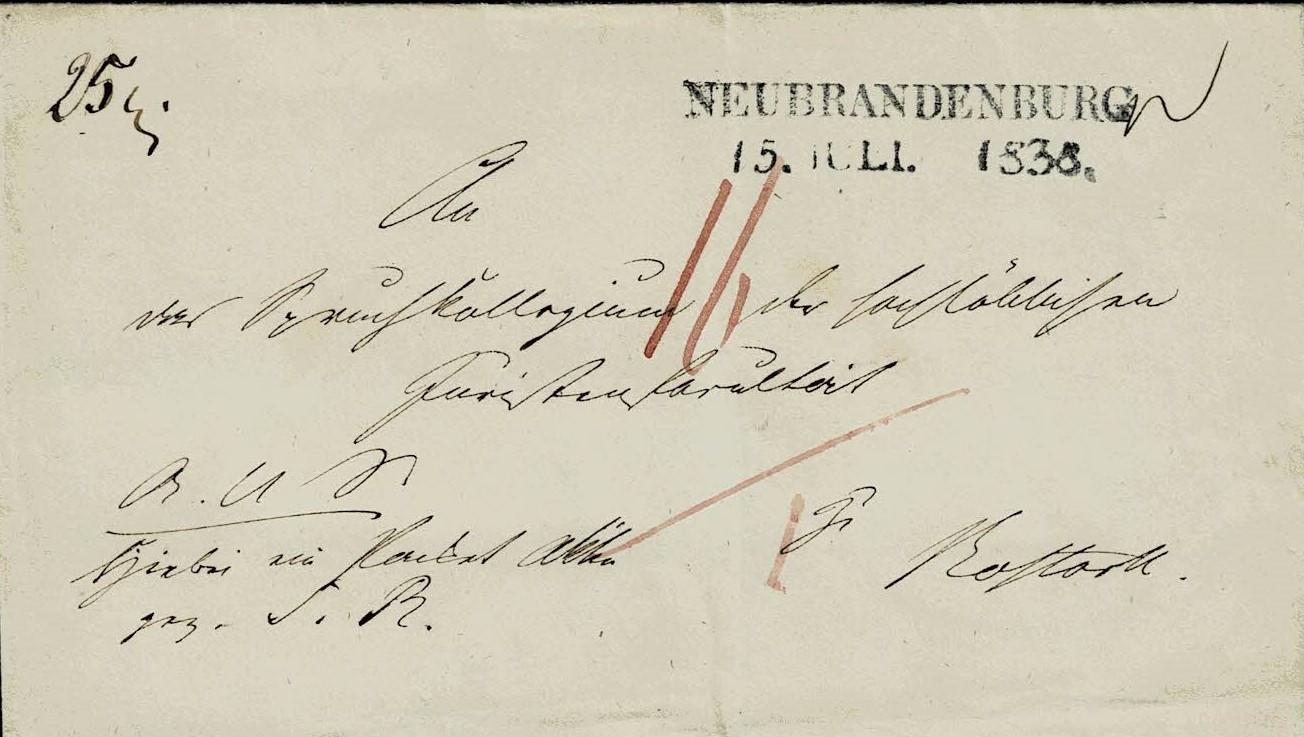 25
NEUBRANDENBURG
15. JULI. 1838.
An
das Spruchkollegium der hochlöblichen
Juristenfacultät
16
zu
Rostock.
Hiebei ein Packet Akten
gez. S. R.